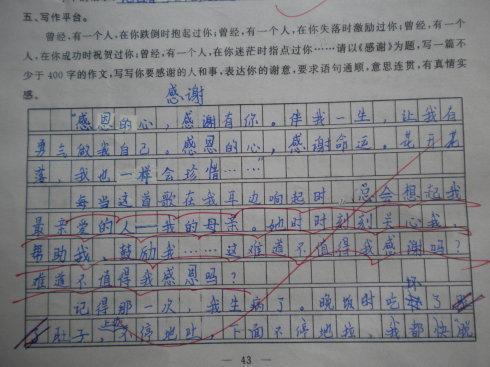 五、写作平台。
曾经,有一个人,在你跌倒时抱起过你;曾经,有一个人,在你失落时激励过你;曾经,有一个
人,在你成功时祝贺过你;曾经,有一个人,在你迷茫时指点过你……请以《感谢》为题,写一篇不
少于400字的作文,写写你要感谢的人和事,表达你的谢意,要求语句通顺,意思连贯,有真情实
感。
感谢
“感恩的心,感谢有你。伴我一生,让我有
勇气做我自己。感恩的心,感谢命运。花开花
落,我也一样会珍惜……”
每当这首歌在我耳边响起时,总会想起我
最亲爱的人——我的母亲。她时时刻刻关心我、
帮助我、鼓励我……这难道不值得我感谢吗?
难道不值得我感恩吗?
记得那一次,我生病了。晚饭时吃坏了
肚子,上面不停地吐,下面不停地拉,我都快
— 43 —